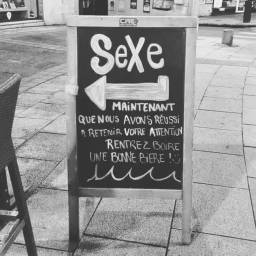 SEXE
MAINTENANT
QUE NOUS AVONS RÉUSSI
A RETENIR VOTRE ATTENTION
RENTREZ BOIRE
UNE BONNE BIERE ! :)